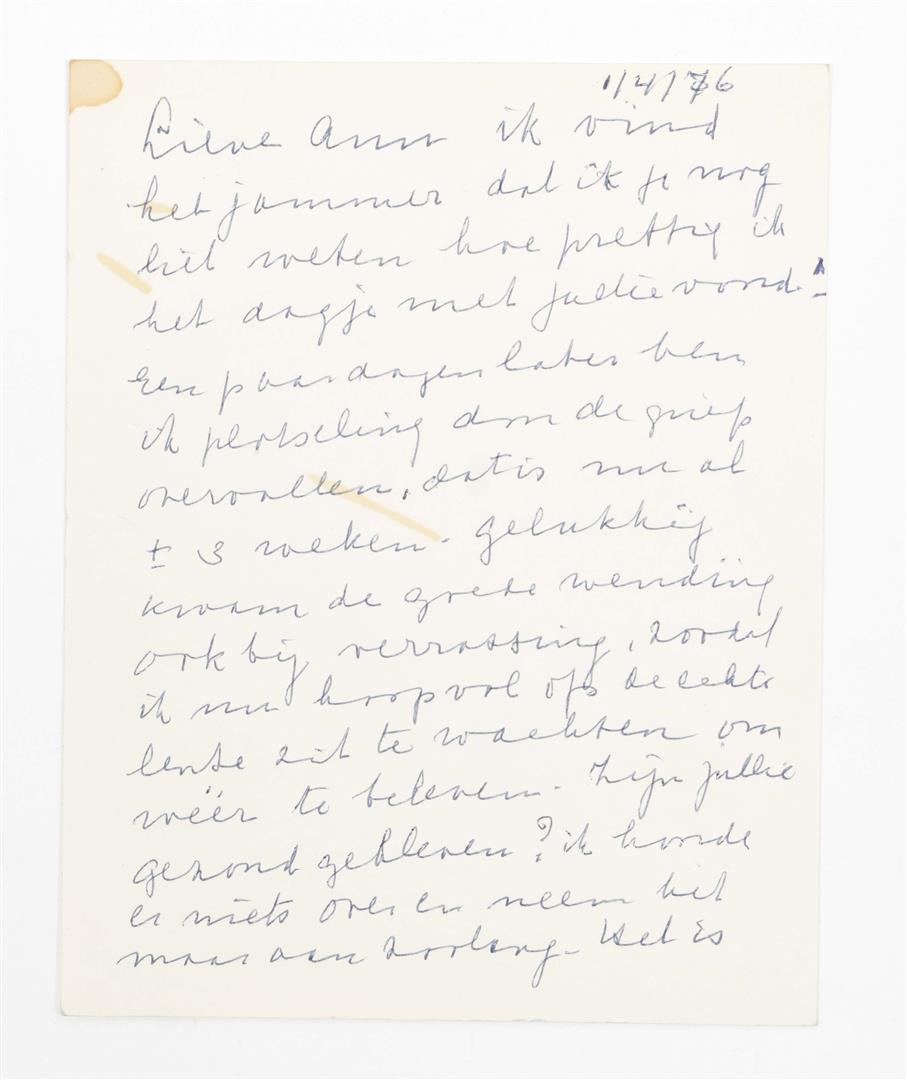 1/4/76
Lieve Ann ik vind
het jammer dat ik je nog
liet weten hoe prettig ik
het dagje met jullie vond!
Een paar dagen later ben
ik plotseling door de griep
overvallen, dat is nu al
± 3 weken. gelukkig
kwam de goede wending
ook bij verrassing, zodat
ik nu hoopvol op de echte
lente zit te wachten om
wéér te beleven. Zijn jullie
gezond gebleven? ik hoorde
er niets over en neem het
maar aan zolang. Het Es